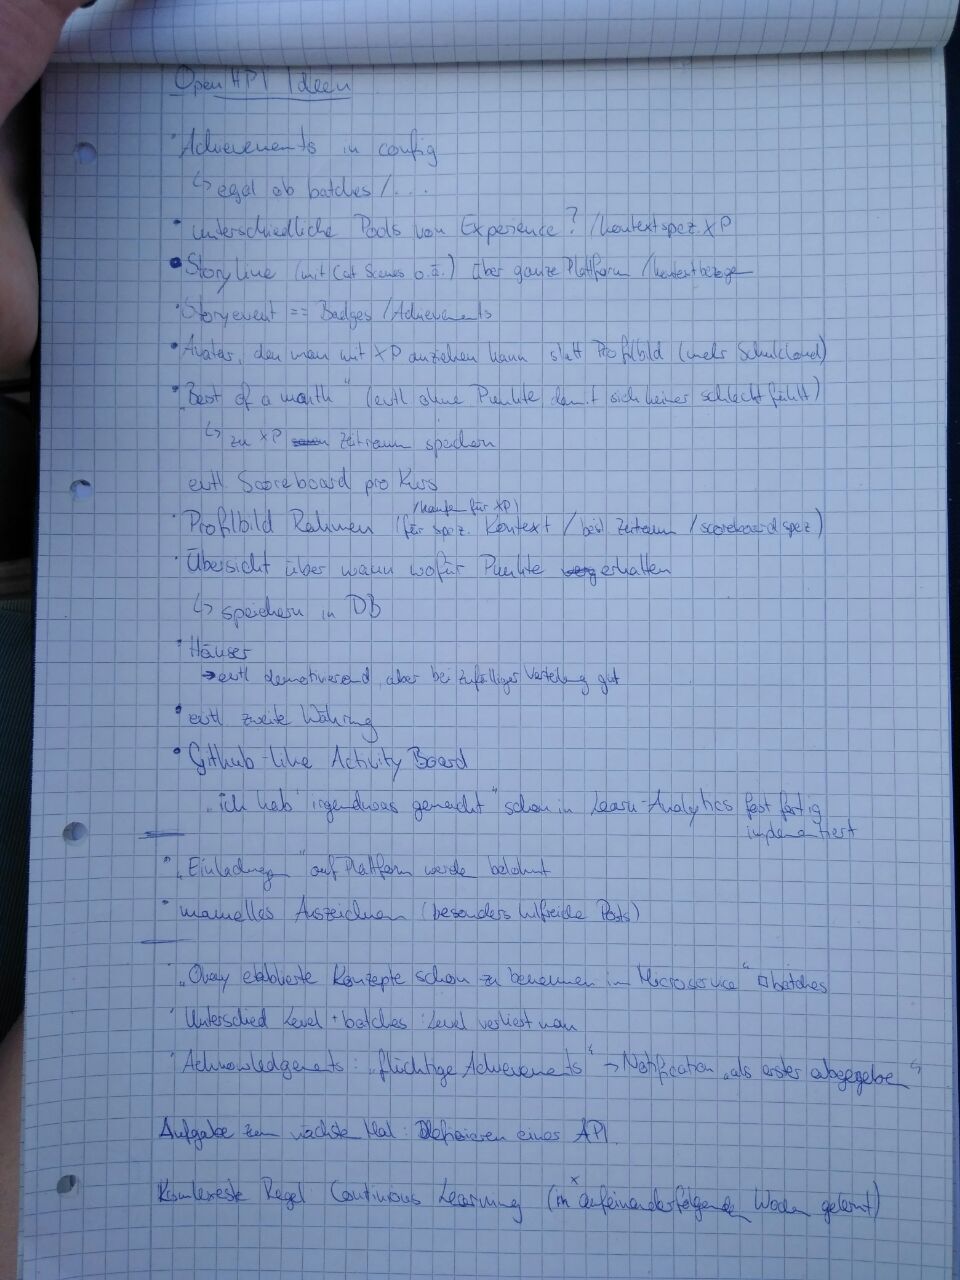 OpenHPI Ideen
· Achievements in config
↳ egal ob batches / ...
· unterschiedliche Pools von Experience? /kontextspez. XP
• Storyline (mit Cut Scenes o.ä.) über ganze Plattform /kontextbezogen
· Storyevent == Badges / Achievements
· Avatar, den man mit XP anziehen kann statt Profilbild (mehr Schulcloud)
· „Best of a month" (evtl ohne Punkte, damit sich keiner schlecht fühlt)
↳ zu XP Zeitraum speichern
evtl. Scoreboard pro Kurs
/kaufen für XP)
· Profilbild Rahmen (für spez. Kontext / Zeitraum / scoreboard spez)
· Übersicht über wann wofür Punkte erhalten
↳ speichern in DB
· Häuser
→ evtl demotivierend, aber bei zufälliger Verteilung gut
· evtl. zweite Währung
· Github-like Activity Board
„ich hab' irgendwas gemacht" schon in Learn-Analytics fast fertig
implementiert
· „Einladung" auf Plattform werde belohnt
· manuelles Auszeichnen (besonders hilfreiche Posts)
· „Okay etablierte Konzepte schon zu benennen im Microservice" batches
· Unterschied Level + batches: Level verliert man
· Acknowledgements: „flüchtige Achievements" → Notification „als erster abgegeben"
Aufgabe zum nächste Mal: Definieren eines API
Komplexeste Regel: Continuous Learning (in x aufeinanderfolgenden Wochen gelernt)